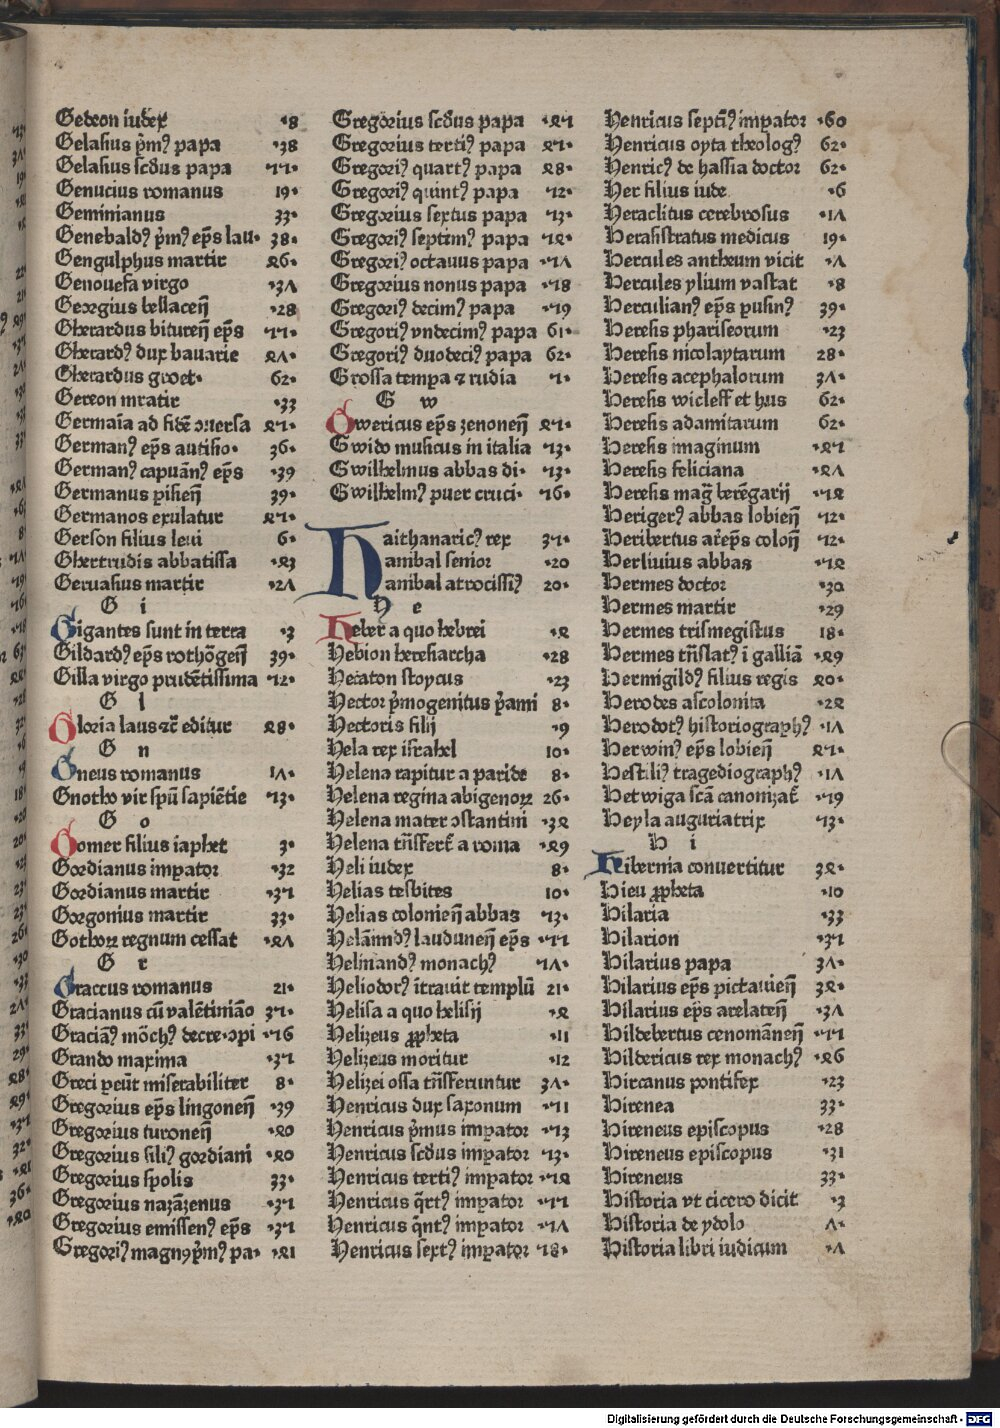 Gedeon iudex ·8
Gelasius p̄m⁹ papa ·38
Gelasius sc̄dus papa ·11·
Genucius romanus 19·
Geminianus 33·
Genebald⁹ p̄m⁹ ep̄s lau· 38·
Gengulphus martir 46·
Genouefa virgo ·37
Georgius bellaceñ ·28
Gherardus bitureñ ep̄s ·11·
Gherard⁹ dux bauarie 47·
Gherardus groet· 62·
Gereon mratir ·33
Germaīa ad fidē ↄuersa 41·
German⁹ ep̄s autisio· 36·
German⁹ capuān⁹ ep̄s ·39
Germanus pisieñ 39·
Germanos exulatur 41·
Gerson filius leui 6·
Ghertrudis abbatissa ·43
Geruasius martir ·27
G i
Gigantes sunt in terra ·3
Gildard⁹ ep̄s rothōgeñ 39·
Gilla virgo prudētissima ·12·
G l
Gloria laus ⁊c̄ editur 48·
G n
Gneus romanus 17·
Gnotho vir spū sapiētie ·13·
G o
Gomer filius iaphet 3·
Gordianus impator ·32
Gordianus martir ·31
Gorgonius martir 33·
Gothoꝝ regnum cessat ·47
G r
Graccus romanus 21·
Gracianus cū valētiniāo 31·
Graciā⁹ mōch⁹ decre·ↄpi ·16
Grando maxima ·31
Greci peūt miserabiliter 8·
Gregorius ep̄s lingoneñ ·39
Gregorius turoneñ ·40
Gregorius fili⁹ gordiani ·40
Gregorius spolis 33·
Gregorius nazāzenus ·31
Gregorius emissen⁹ ep̄s ·31
Gregori⁹ magn⁹ p̄m⁹ pa· ·41
Gregorius sc̄dus papa ·41
Gregorius terti⁹ papa 41·
Gregori⁹ quart⁹ papa 48·
Gregori⁹ quint⁹ papa ·12·
Gregorius sextus papa ·13·
Gregori⁹ septim⁹ papa ·14·
Gregori⁹ octauus papa ·17
Gregorius nonus papa ·18
Gregori⁹ decim⁹ papa ·19
Gregori⁹ vndecim⁹ papa 61·
Gregori⁹ duodeci⁹ papa 62·
Grossa tempa ⁊ rudia ·1·
G w
Gwericus ep̄s zenoneñ 41·
Gwido musicus in italia ·13·
Gwilhelmus abbas di· ·13·
Gwilhelm⁹ puer cruci· ·16·
Haithanaric⁹ rex 31·
Hanibal senior ·20
Hanibal atrocissi⁹ 20·
H e
Heber a quo hebrei ·4
Hebion heresiarcha ·28
Hecaton stoycus ·23
Hector p̄mogenitus p̄ami 8·
Hectoris filij ·9
Hela rex israhel 10·
Helena rapitur a paride 8·
Helena regina abigenoꝝ 26·
Helena mater ↄstantini ·34
Helena trn̄sfert̄ a roma ·49
Heli iudex 8·
Helias tesbites 10·
Helias colonieñ abbas ·13·
Helāind⁹ lauduneñ ep̄s ·11
Helinand⁹ monach⁹ ·17·
Heliodor⁹ ītrauit templū 21·
Helisa a quo helisij ·4
Helizeus ꝓpheta ·11
Helizeus moritur ·12
Helizei ossa trn̄sferuntur 37·
Henricus dux saxonum ·11
Henricus p̄mus impator ·13
Henricus sc̄dus impator ·13·
Henricus terti⁹ impator ·14
Henricus q̄rt⁹ impator ·11
Henricus q̄nt⁹ impator ·17
Henricus sext⁹ impator ·18·
Henricus septi⁹ impator ·60
Henricus oyta theolog⁹ 62·
Henric⁹ de hassia doctor 62·
Her filius iude ·6
Heraclitus cerebrosus ·17
Herasistratus medicus 19·
Hercules antheum vicit ·7
Hercules ylium vastat ·8
Herculian⁹ ep̄s pusin⁹ 39·
Heresis phariseorum ·23
Heresis nicolaytarum 28·
Heresis acephalorum 37·
Heresis wicleff et hus 62·
Heresis adamitarum 62·
Heresis imaginum ·41
Heresis feliciana ·47
Heresis mag̃ berēgarij ·14
Heriger⁹ abbas lobieñ ·12·
Heribertus ar̄ep̄s coloñ ·12·
Herliuius abbas ·14
Hermes doctor ·30
Hermes martir ·29
Hermes trismegistus 18·
Hermes trn̄slat⁹ ī galliā ·49
Hermigild⁹ filius regis 40·
Herodes ascolonita ·24
Herodot⁹ historiograph⁹ ·17
Herwin⁹ ep̄s lobieñ 41·
Hestili⁹ tragediograph⁹ ·17
Hetwiga scā canonizat̄ ·19
Heyla auguriatrix ·13·
H i
Hibernia conuertitur 34·
Hieu ꝓpheta ·10
Hilaria ·33
Hilarion ·31
Hilarius papa 37·
Hilarius ep̄s pictauieñ 34·
Hilarius ep̄s arelateñ ·37
Hildebertus cenomāneñ ·11
Hildericus rex monach⁹ ·46
Hircanus pontifex ·23
Hirenea 33·
Hireneus episcopus ·28
Hireneus episcopus ·31
Hireneus 33·
Historia vt cicero dicit ·3
Historia de ydolo 7·
Historia libri iudicum ·7
Digitalisierung gefördert durch die Deutsche Forschungsgemeinschaft - DFG